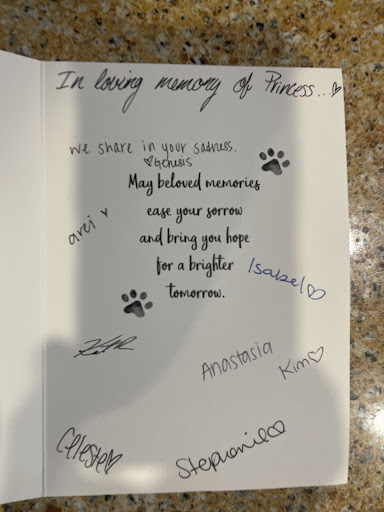 In loving memory of Princess...♡
we share in your sadness.
♡Genesis
May beloved memories
ease your sorrow
and bring you hope
for a brighter
tomorrow.
arei ♥
Isabel♡
Anastasia
Kim♡
Celeste♡
Stephanie♡